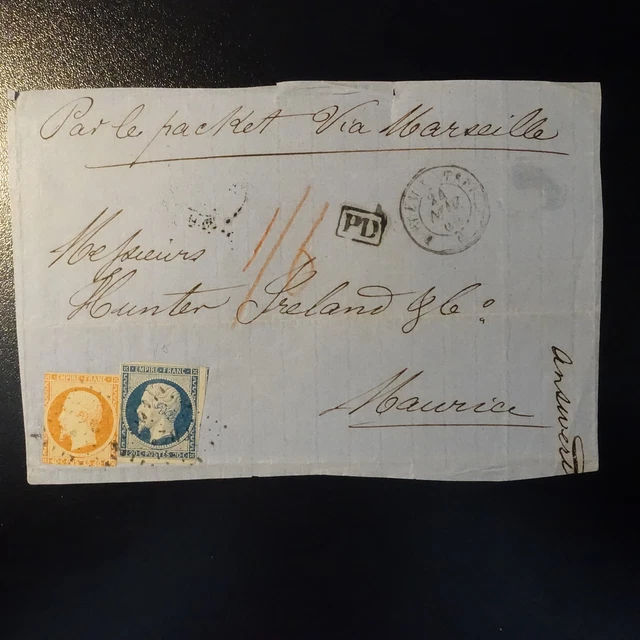 Par le packet Via Marseille
PD
1/6
Messieurs
Hunter Ireland & Co
Maurice
Answerd
EMPIRE FRANC
EMPIRE FRANC
20 C POSTES 20 C